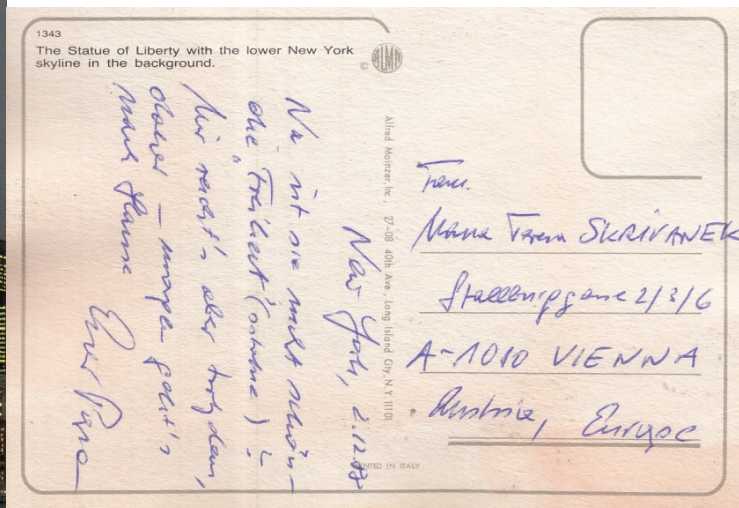 1343
The Statue of Liberty with the lower New York
skyline in the background.
© ALMA
Alfred Mainzer, Inc., 27-08 40th Ave., Long Island City, N.Y. 11101
PRINTED IN ITALY
New York, 2.12.
Na ist sie nicht schön –
die „Freiheit“ (statue)?
Mir reicht's aber trotzdem,
– morgen geht's
nach Hause
Euer Papa
Frau
Maria Teresa SKRIVANEK
Stallburggasse 2/3/6
A-1010 VIENNA
Austria, Europe